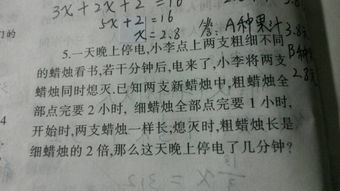 3x+2x+2=16
5x+2=16
x=2.8
答:A种果汁3.8
B种
2.8元
5.一天晚上停电,小李点上两支粗细不同
的蜡烛看书,若干分钟后,电来了,小李将两支
蜡烛同时熄灭.已知两支新蜡烛中,粗蜡烛全
部点完要2小时, 细蜡烛全部点完要1小时,
开始时,两支蜡烛一样长,熄灭时,粗蜡烛长是
细蜡烛的2倍,那么这天晚上停电了几分钟?